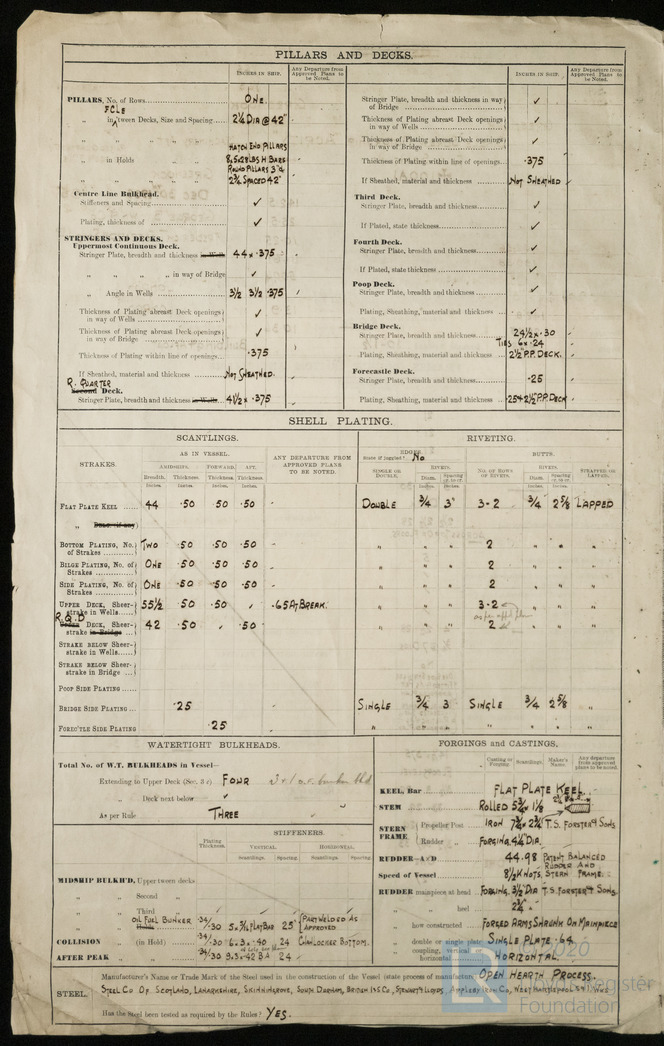 PILLARS AND DECKS.
INCHES IN SHIP.
Any Departure from Approved Plans to be Noted.
PILLARS, No. of Rows
ONE.
FCLE
„ in 'tween Decks, Size and Spacing
2¼ DIA @ 42"
„ „ „ „
HATCH END PILLARS
„ in Holds
8.5 x 28 LBS H BARS
ROUND PILLARS 3"&
2¾ SPACED 42"
Centre Line Bulkhead.
Stiffeners and Spacing ✓
Plating, thickness of ✓
STRINGERS AND DECKS.
Uppermost Continuous Deck.
Stringer Plate, breadth and thickness in Wells 44 x .375
„ „ „ „ in way of Bridge ✓
„ Angle in Wells 3½ 3½ .375
Thickness of Plating abreast Deck openings in way of Wells ✓
Thickness of Plating abreast Deck openings in way of Bridge ✓
Thickness of Plating within line of openings .375
If Sheathed, material and thickness NOT SHEATHED.
R. QUARTER
Second Deck.
Stringer Plate, breadth and thickness in Wells 41½ x .375
INCHES IN SHIP.
Any Departure from Approved Plans to be Noted.
Stringer Plate, breadth and thickness in way of Bridge ✓
Thickness of Plating abreast Deck openings in way of Wells ✓
Thickness of Plating abreast Deck openings in way of Bridge ✓
Thickness of Plating within line of openings .375
If Sheathed, material and thickness NOT SHEATHED
Third Deck.
Stringer Plate, breadth and thickness ✓
If Plated, state thickness ✓
Fourth Deck.
Stringer Plate, breadth and thickness ✓
If Plated, state thickness ✓
Poop Deck.
Stringer Plate, breadth and thickness ✓
Plating, Sheathing, material and thickness ✓
Bridge Deck.
Stringer Plate, breadth and thickness 24½ x .30
TIES 6 x .24
Plating, Sheathing, material and thickness 2½" P.P. DECK.
Forecastle Deck.
Stringer Plate, breadth and thickness .25
Plating, Sheathing, material and thickness .25 & 2½" P.P. DECK
SHELL PLATING.
SCANTLINGS.
RIVETING.
STRAKES.
AS IN VESSEL.
AMIDSHIPS. FORWARD. AFT.
Breadth. Thickness. Thickness. Thickness.
Inches. Inches. Inches. Inches.
ANY DEPARTURE FROM APPROVED PLANS TO BE NOTED.
EDGES.
State if joggled? No
SINGLE OR DOUBLE.
RIVETS.
Diam. Spacing cr. to cr.
BUTTS.
NO. OF ROWS OF RIVETS.
RIVETS.
Diam. Spacing cr. to cr.
STRAPPED OR LAPPED.
FLAT PLATE KEEL 44 .50 .50 .50 DOUBLE ¾ 3" 3-2 ¾ 2⅝ LAPPED
BOTTOM PLATING, No. of Strakes TWO .50 .50 .50 „ „ „ 2 „ „ „
BILGE PLATING, No. of Strakes ONE .50 .50 .50 „ „ „ 2 „ „ „
SIDE PLATING, No. of Strakes ONE .50 .50 .50 „ „ „ 2 „ „ „
UPPER DECK, Sheerstrake in Wells 55½ .50 .50 ✓ .65 AT BREAK. „ „ „ 3-2 „ „ „
R.Q.D
Upper DECK, Sheerstrake in Bridge 42 .50 ✓ .50 „ „ „ 2 „ „ „
STRAKE BELOW Sheerstrake in Wells
STRAKE BELOW Sheerstrake in Bridge
POOP SIDE PLATING
BRIDGE SIDE PLATING .25 SINGLE ¾ 3 SINGLE ¾ 2⅝ „
FORE'C'TLE SIDE PLATING .25 „ „ „ „ „ „ „
WATERTIGHT BULKHEADS.
Total No. of W.T. BULKHEADS in Vessel—
Extending to Upper Deck (Sec. 3 c) FOUR
„ Deck next below ✓
As per Rule THREE
STIFFENERS.
Plating Thickness.
VERTICAL. HORIZONTAL.
Scantlings. Spacing. Scantlings. Spacing.
MIDSHIP BULKH'D, Upper tween decks
„ „ Second „
„ „ Third „
OIL FUEL BUNKER
Holds .34/.30 5 x ¾ FLAT BAR 25" PART WELDED AS APPROVED
COLLISION (in Hold) .34/.30 6 x 3 x .40 24 CHAIN LOCKER BOTTOM.
AFTER PEAK „ .34/.30 24
FORGINGS AND CASTINGS.
Casting or Forging. Scantlings. Maker's Name. Any departure from approved plans to be noted.
KEEL, Bar FLAT PLATE KEEL.
STEM ROLLED 5¾ x 1⅛
STERN FRAME
Propeller Post IRON 7¾ x 2¾ T.S. FORSTER & SONS
Rudder „ FORGING. 4¼ DIA.
RUDDER—A×D 44.98 PATENT BALANCED
Speed of Vessel 8½ KNOTS. RUDDER AND STERN FRAME.
RUDDER mainpiece at head FORGING. 3½ DIA T.S. FORSTER & SONS
„ „ heel 2¼ „
„ how constructed FORGED ARMS SHRUNK ON MAINPIECE
„ double or single plate SINGLE PLATE .64.
„ coupling, vertical or horizontal HORIZONTAL.
STEEL.
Manufacturer's Name or Trade Mark of the Steel used in the construction of the Vessel (state process of manufacture) OPEN HEARTH PROCESS.
STEEL CO OF SCOTLAND, LANARKSHIRE, SKINNINGROVE, SOUTH DURHAM, BRITISH I & S CO, STEWARTS & LLOYDS, APPLEBY IRON CO, WEST HARTLEPOOL
Has the Steel been tested as required by the Rules? YES.
©2020
Lloyd's Register
Foundation